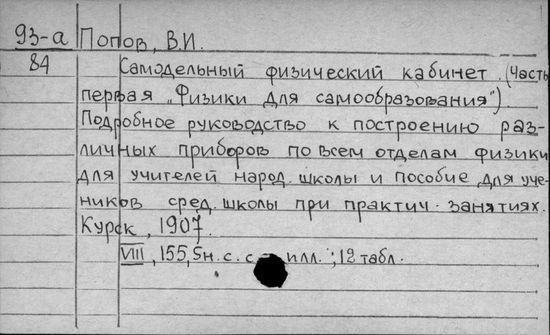 93-а Попов, В.И.
84 Самодельный физический кабинет. (Часть
первая „Физики для самообразования").
Подробное руководство к построению раз-
личных приборов по всем отделам физики
для учителей народ. школы и пособие для уче-
ников сред. школы при практич. занятиях.
Курск, 1907.
VIII, 155, 5н. с. с илл.; 12 табл.